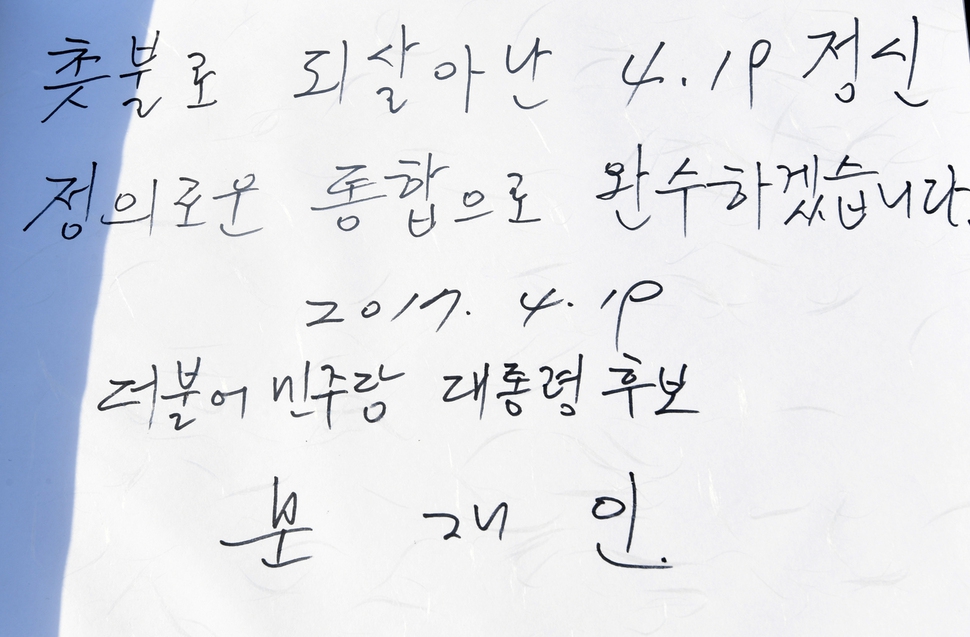 촛불로 되살아난 4.19 정신
정의로운 통합으로 완수하겠습니다.
2017. 4. 19
더불어 민주당 대통령 후보
문 재 인.